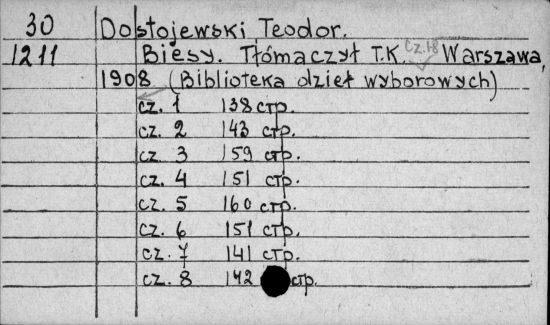 30 Dostojewski Teodor.
1211 Biesy. Tłómaczył T.K. cz. 1-8 Warszawa,
1908 (Biblioteka dzieł wyborowych)
cz. 1 138 стр.
cz. 2 143 стр.
cz. 3 159 стр.
cz. 4 151 стр.
cz. 5 160 стр.
cz. 6 151 стр.
cz. 7 141 стр.
cz. 8 142 стр.